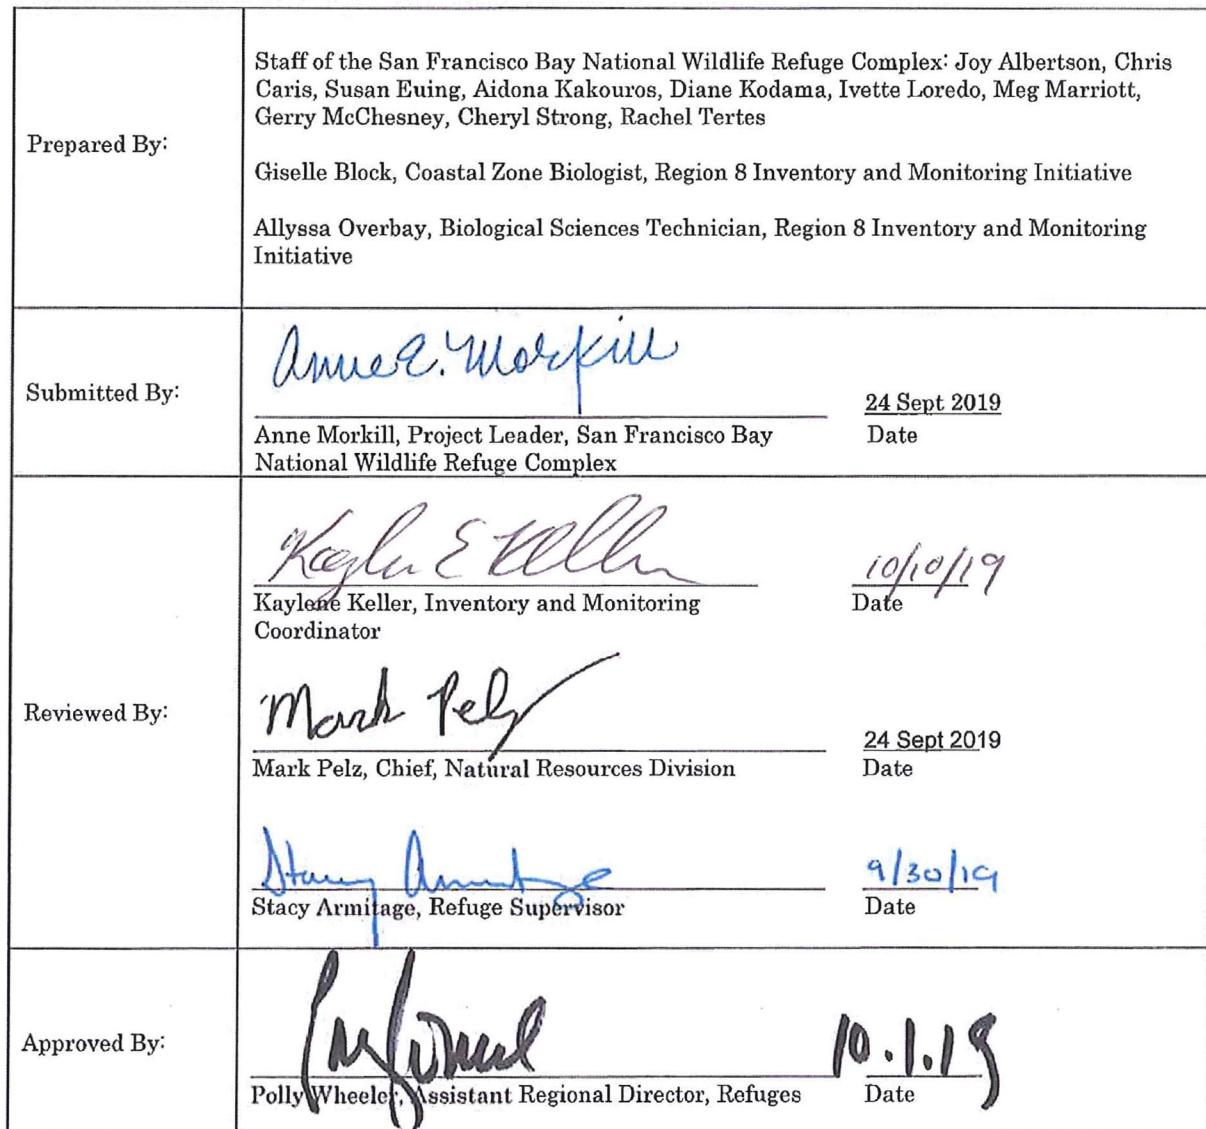 Prepared By:
Staff of the San Francisco Bay National Wildlife Refuge Complex: Joy Albertson, Chris
Caris, Susan Euing, Aidona Kakouros, Diane Kodama, Ivette Loredo, Meg Marriott,
Gerry McChesney, Cheryl Strong, Rachel Tertes
Giselle Block, Coastal Zone Biologist, Region 8 Inventory and Monitoring Initiative
Allyssa Overbay, Biological Sciences Technician, Region 8 Inventory and Monitoring
Initiative
Submitted By:
Anne E. Morkill
24 Sept 2019
Anne Morkill, Project Leader, San Francisco Bay
National Wildlife Refuge Complex
Date
Reviewed By:
10/10/19
Kaylene Keller, Inventory and Monitoring
Coordinator
Date
Mark Pelz
24 Sept 2019
Mark Pelz, Chief, Natural Resources Division
Date
Stacy Armitage
9/30/19
Stacy Armitage, Refuge Supervisor
Date
Approved By:
10.1.19
Polly Wheeler, Assistant Regional Director, Refuges
Date